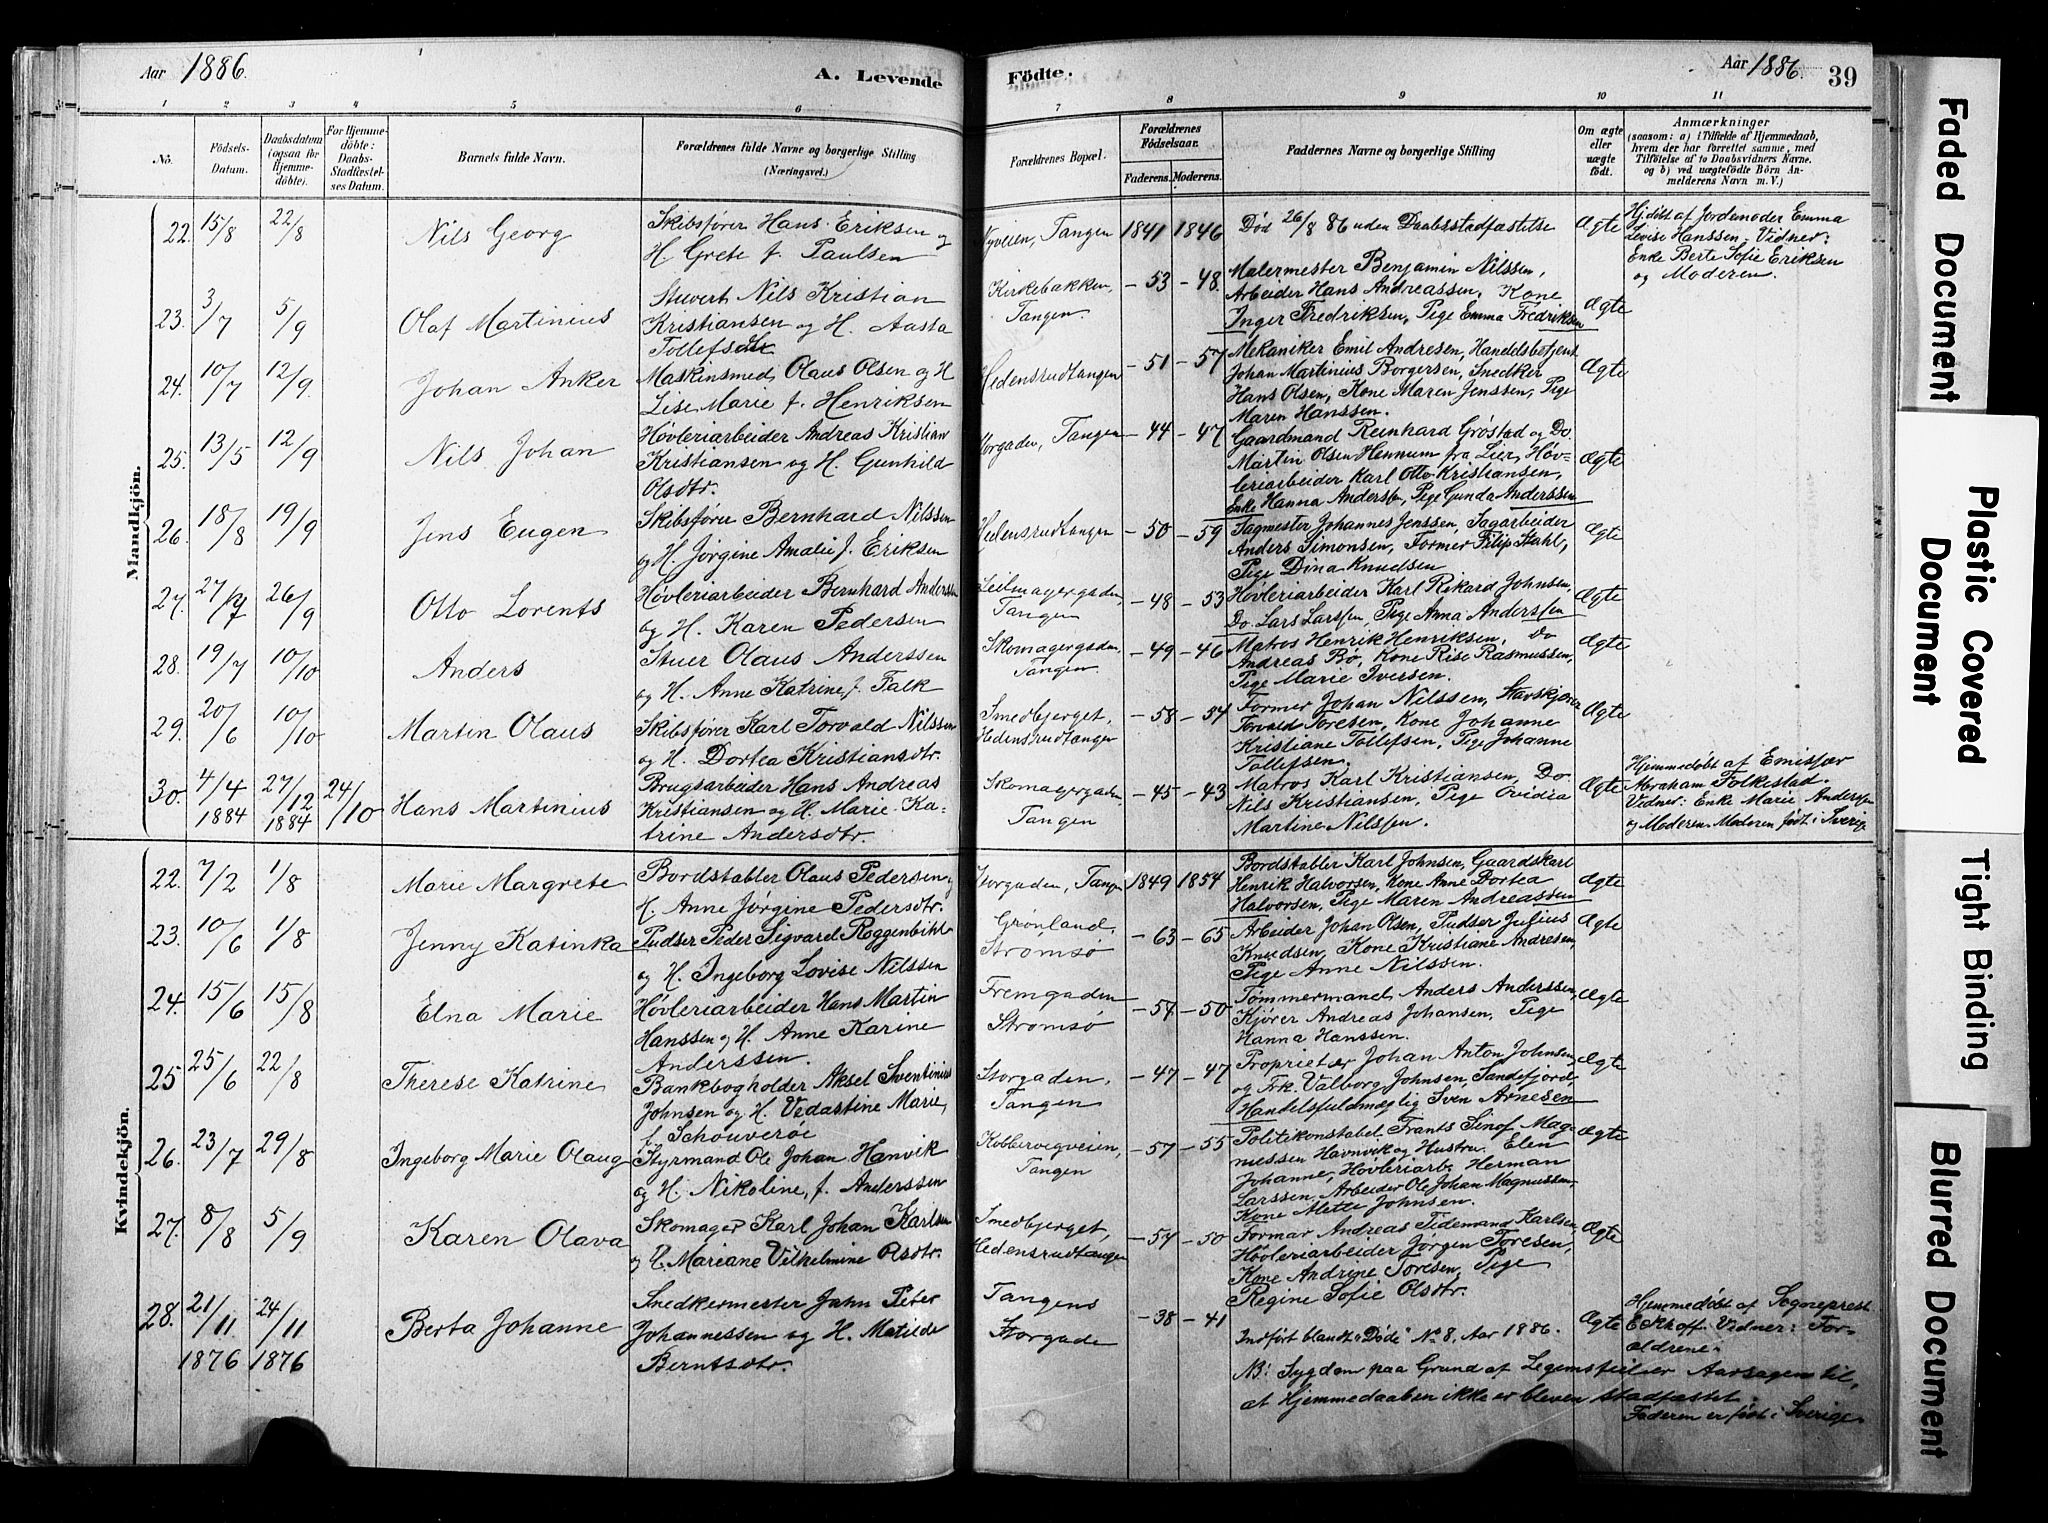 Aar 1886.
A. Levende
Födte.
Aar 1886.
39
1 2 3 4 5 6 7 8 9 10 11
No.
Födsels-
Datum.
Daabsdatum
(ogsaa for
Hjemme-
döbte).
For Hjemme-
döbte:
Daabs-
Stadfæstel-
ses Datum.
Barnets fulde Navn.
Forældrenes fulde Navne og borgerlige Stilling
(Næringsvei.)
Forældrenes Bopæl.
Forældrenes
Födselsaar.
Faderens. Moderens.
Faddernes Navne og borgerlige Stilling
Om ægte
eller
uægte
født.
Anmærkninger
(saasom: a) i Tilfælde af Hjemmedaab,
hvem der har forrettet samme, med
Tilföielse af to Daabsvidners Navne.
og b) ved uægtefödte Börn An-
melderens Navn m. V.)
Mandkjön.
22. 15/8 22/8 Nils Georg
Skibsfører Hans Eriksen og
H. Grete f. Paulsen
Nyveien, Tangen 1841 1846
Død 26/8 86 uden Daabsstadfæstelse
Ægte
Hj.døbt af Jordemoder Emma
Levise Hanssen. Vidner:
Enke Berte Sofie Eriksen
og Moderen.
23. 3/7 5/9 Olaf Martinius
Stuert Nils Kristian
Kristiansen og H. Aasta
Tollefsdtr
Kirkebakken,
Tangen.
-53 -48.
Malermester Benjamin Nilssen,
Arbeider Hans Andreassen, Kone
Inger Fredriksen, Pige Emma Fredriksen
Ægte
24. 10/7 12/9. Johan Anker
Maskinsmed Olaus Olsen og H
Lise Marie f. Henriksen
Hedensrudtangen -51 -57
Mekaniker Emil Andresen, Handelsbetjent
Johan Martinius Borgersen, Snedker
Hans Olsen, Kone Maren Jenssen, Pige
Maren Hanssen.
Ægte
25. 13/5 12/9 Nils Johan
Høvleriarbeider Andreas Kristian
Kristiansen og H. Gunhild
Olsdtr.
Storgaden, Tangen -44 -47
Gaardmand Reinhard Grøstad og Do.
Martin Olsen Hennum fra Lier, Høv-
leriarbeider Karl Otto Kristiansen,
Enke Hanna Andersen, Pige Gunda Anderssen
Ægte
26. 18/8 19/9 Jens Eugen
Skibsfører Bernhard Nilssen
og H. Jørgine Amalie f. Eriksen
Hedensrudtangen -50 -59
Sagmester Johannes Jenssen, Sagarbeider
Anders Simonsen, Former Filip Stahl,
Pige Dina Knudsen
Ægte
27. 27/7 26/9 Otto Lorents
Høvleriarbeider Bernhard Anderssen
og H. Karen Pedersen
Seilmagergaden,
Tangen
-48 -53
Høvleriarbeider Karl Rikard Johnsen,
Do Lars Larssen, Pige Anna Anderssen
Ægte
28. 19/7 10/10 Anders
Stuer Olaus Anderssen
og H. Anne Katrine f. Falk
Skomagergaden,
Tangen.
-49 -46
Matros Henrik Henriksen, Do
Andreas Bø, Kone Rise Rasmussen,
Pige Marie Iversen.
Ægte
29. 20/6 10/10 Martin Olaus
Skibsfører Karl Torvald Nilssen
og H. Dortea Kristiansdtr.
Smedbjerget,
Hedensrudtangen
-58 -54
Former Johan Nilssen, Stavskjærer
Torvald Toresen, Kone Johanne
Kristiane Tollefsen, Pige Johanne
Tollefsen.
Ægte
30. 4/4 1884 27/12 1884 24/10 Hans Martinius
Brugsarbeider Hans Andreas
Kristiansen og H. Marie Ka-
trine Andersdtr.
Skomagergaden
Tangen
-45 -43
Matros Karl Kristiansen, Do.
Nils Kristiansen, Pige Ovidia
Martine Nilssen.
Ægte
Hjemmedøbt af Emissær
Abraham Folkestad.
Vidner: Enke Marie Anderssen
og Moderen. Moderen født i Sverige
Kvindekjön.
22. 7/2 1/8 Marie Margrete
Bordstabler Olaus Pedersen og
H. Anne Jørgine Pedersdtr.
Storgaden, Tangen 1849 1854
Bordstabler Karl Johnsen, Gaardskarl
Henrik Halvorsen, Kone Anne Dortea
Halvorsen, Pige Maren Andreassen
Ægte
23. 10/6 1/8 Jenny Katinka
Pudser Peder Sigvard Roggenbihl
og H. Ingeborg Lovise Nilssen
Grønland,
Strømsø
-63 -65
Arbeider Johan Olsen, Pudser Julius
Knudsen, Kone Kristiane Andresen,
Pige Anne Nilssen.
Ægte
24. 15/6 15/8 Elna Marie
Høvleriarbeider Hans Martin
Hanssen og H. Anne Karine
Anderssen.
Fremgaden
Strømsø
-54 -50
Tømmermand Anders Anderssen,
Kjører Andreas Johansen, Pige
Hanna Hanssen.
Ægte
25 25/6 22/8 Therese Katrine
Bankbogholder Aksel Sventinius
Johnsen og H. Vedastine Marie,
f. Schouverøe
Storgaden,
Tangen
-47 -47
Proprietær Johan Anton Johnsen
og Frk. Valborg Johnsen, Sandefjord
Handelsfuldmægtig Sven Arnesen
Ægte
26. 23/7 29/8 Ingeborg Marie Olaug
Styrmand Ole Johan Hanvik
og H. Nikoline, f. Anderssen
Kobbervigveien,
Tangen
-57 -55
Politikonstabel Frants Sinof Mag-
nussen Havnvik og Hustru Elen
Johanne, Høvleriarb. Herman
Larssen, Arbeider Ole Johan Magnussen,
Kone Mette Johnsen.
Ægte
27. 8/8 5/9 Karen Olava
Skomager Karl Johan Karlsen
og H. Mariane Vilhelmine Olsdtr.
Smedbjerget,
Hedensrudtangen
-54 -50
Formar Andreas Tidemand Karlsen,
Høvleriarbeider Jørgen Toresen,
Kone Andrine Toresen, Pige
Regine Sofie Olsdtr.
Ægte
28. 21/11 1876 24/11 1876 Berta Johanne
Snedkermester John Peter
Johannessen og H. Matilde
Berntsdtr.
Tangens
Storgade
-38 -41
Indført blandt "Døde" No 8. Aar 1886.
Ægte
Hjemmedøbt af Sognepræst
Eckhoff. Vidner: For-
ældrene.
NB: Sygdom paa Grund af Legemsfeil er Aarsagen til,
at Hjemmedaaben ikke er bleven stadfæstet.
Faderen er født i Sverige.
Faded Document
Plastic Covered
Document
Tight Binding
Blurred Document